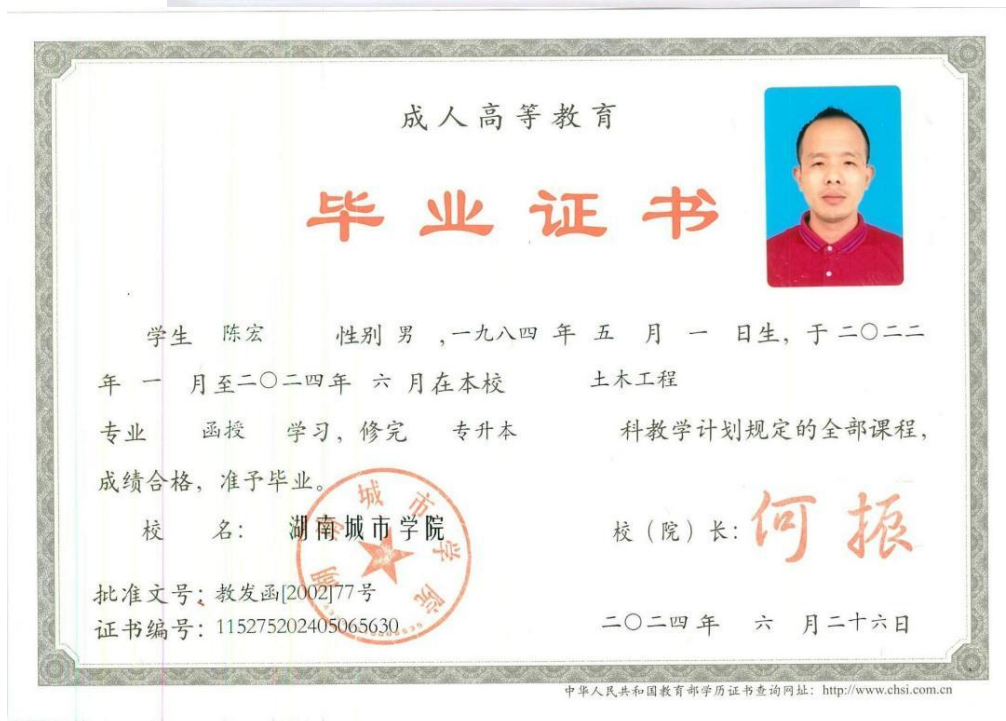 成人高等教育
毕业证书
学生 陈宏 性别 男 ,一九八四 年 五 月 一 日生, 于二〇二二
年 一 月至二〇二四年 六 月在本校 土木工程
专业 函授 学习, 修完 专升本 科教学计划规定的全部课程,
成绩合格, 准予毕业。
校 名: 湖南城市学院 校(院)长: 何振
湖南城市学院
批准文号: 教发函[2002]77号
证书编号: 115275202405065630 二〇二四年 六 月二十六日
中华人民共和国教育部学历证书查询网址: http://www.chsi.com.cn